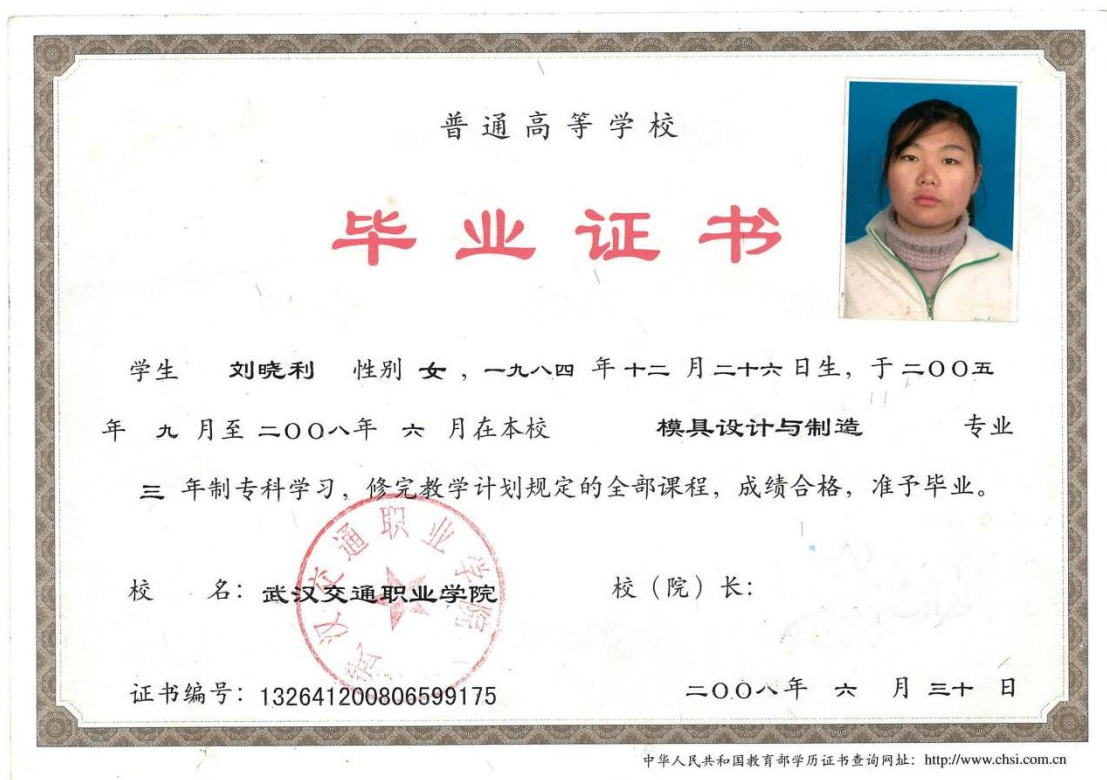 普通高等学校
毕业证书
学生 刘晓利 性别 女，一九八四 年 十二 月 二十六 日生，于 二〇〇五
年 九 月至 二〇〇八年 六 月在本校 模具设计与制造 专业
三 年制专科学习，修完教学计划规定的全部课程，成绩合格，准予毕业。
武汉交通职业学院
校 名：武汉交通职业学院 校（院）长：
证书编号：132641200806599175 二〇〇八年 六 月 三十 日
中华人民共和国教育部学历证书查询网址：http://www.chsi.com.cn